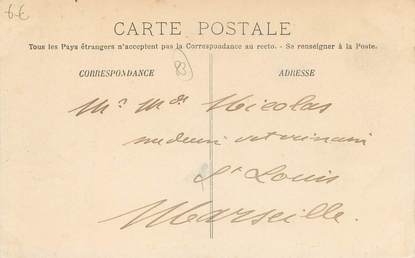 6-€
CARTE POSTALE
Tous les Pays étrangers n'acceptent pas la Correspondance au recto. - Se renseigner à la Poste.
CORRESPONDANCE
83
ADRESSE
Mr. Nicolas
medecin veterinaire
St Louis
Marseille.